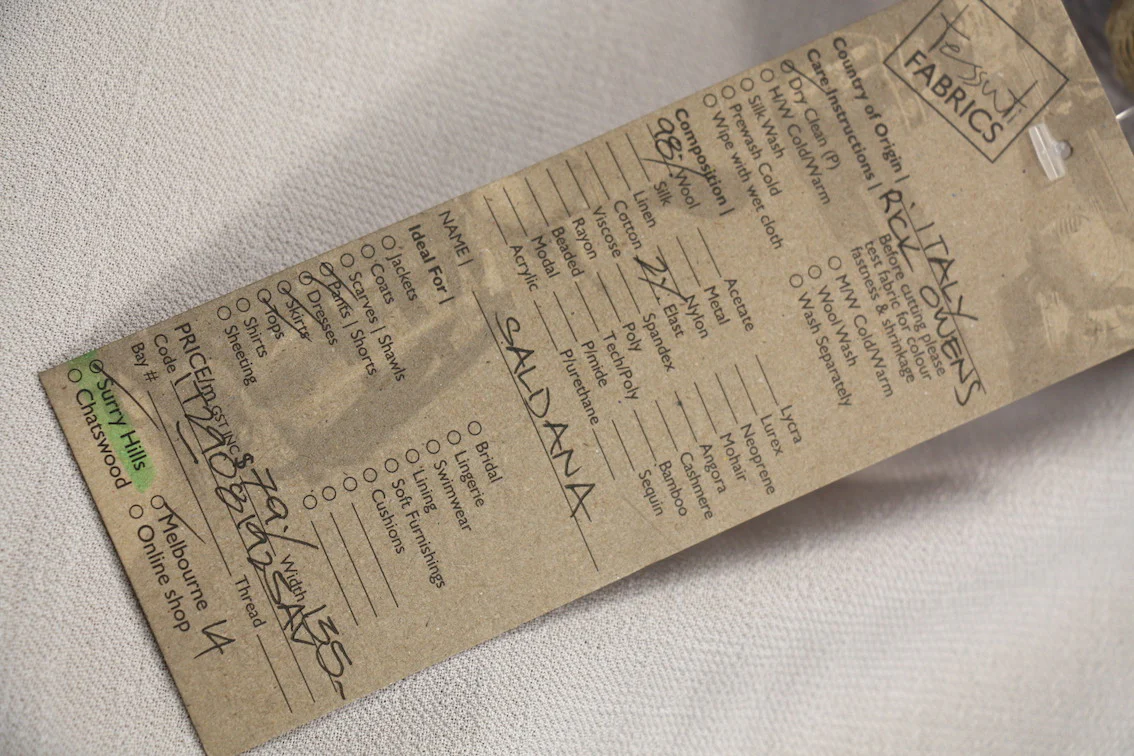 Tessuti
FABRICS
Country of Origin | ITALY
RICK OWENS
Care Instructions | Before cutting please
test fabric for colour
fastness & shrinkage
Dry Clean (P)
H/W Cold/Warm
Silk Wash
Prewash Cold
Wipe with wet cloth
M/W Cold/Warm
Wool Wash
Wash Separately
Composition |
98% Wool
Silk
Linen
Cotton
Viscose
Rayon
Beaded
Modal
Acrylic
Acetate
Metal
Nylon
2% Elast
Spandex
Poly
Tech/Poly
P/mide
P/urethane
Lycra
Lurex
Neoprene
Mohair
Angora
Cashmere
Bamboo
Sequin
NAME | SALDANA
Ideal For |
Jackets
Coats
Scarves | Shawls
Pants | Shorts
Dresses
Skirts
Tops
Shirts
Sheeting
Bridal
Lingerie
Swimwear
Lining
Soft Furnishings
Cushions
PRICE/m GST INC $79.- Width 135-
Code |
Bay # Thread
Surry Hills Melbourne 14
Chatswood Online shop